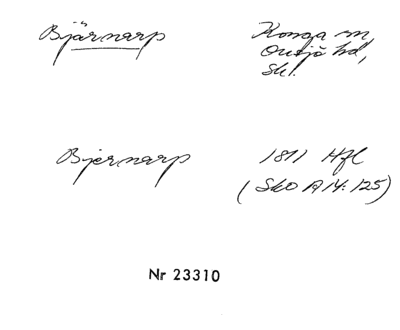 Bjärnarp
Konga sn,
Onsjö hd,
Skl.
Bjernarp
1811 Hfl
(SkO A 14: 125)
Nr 23310